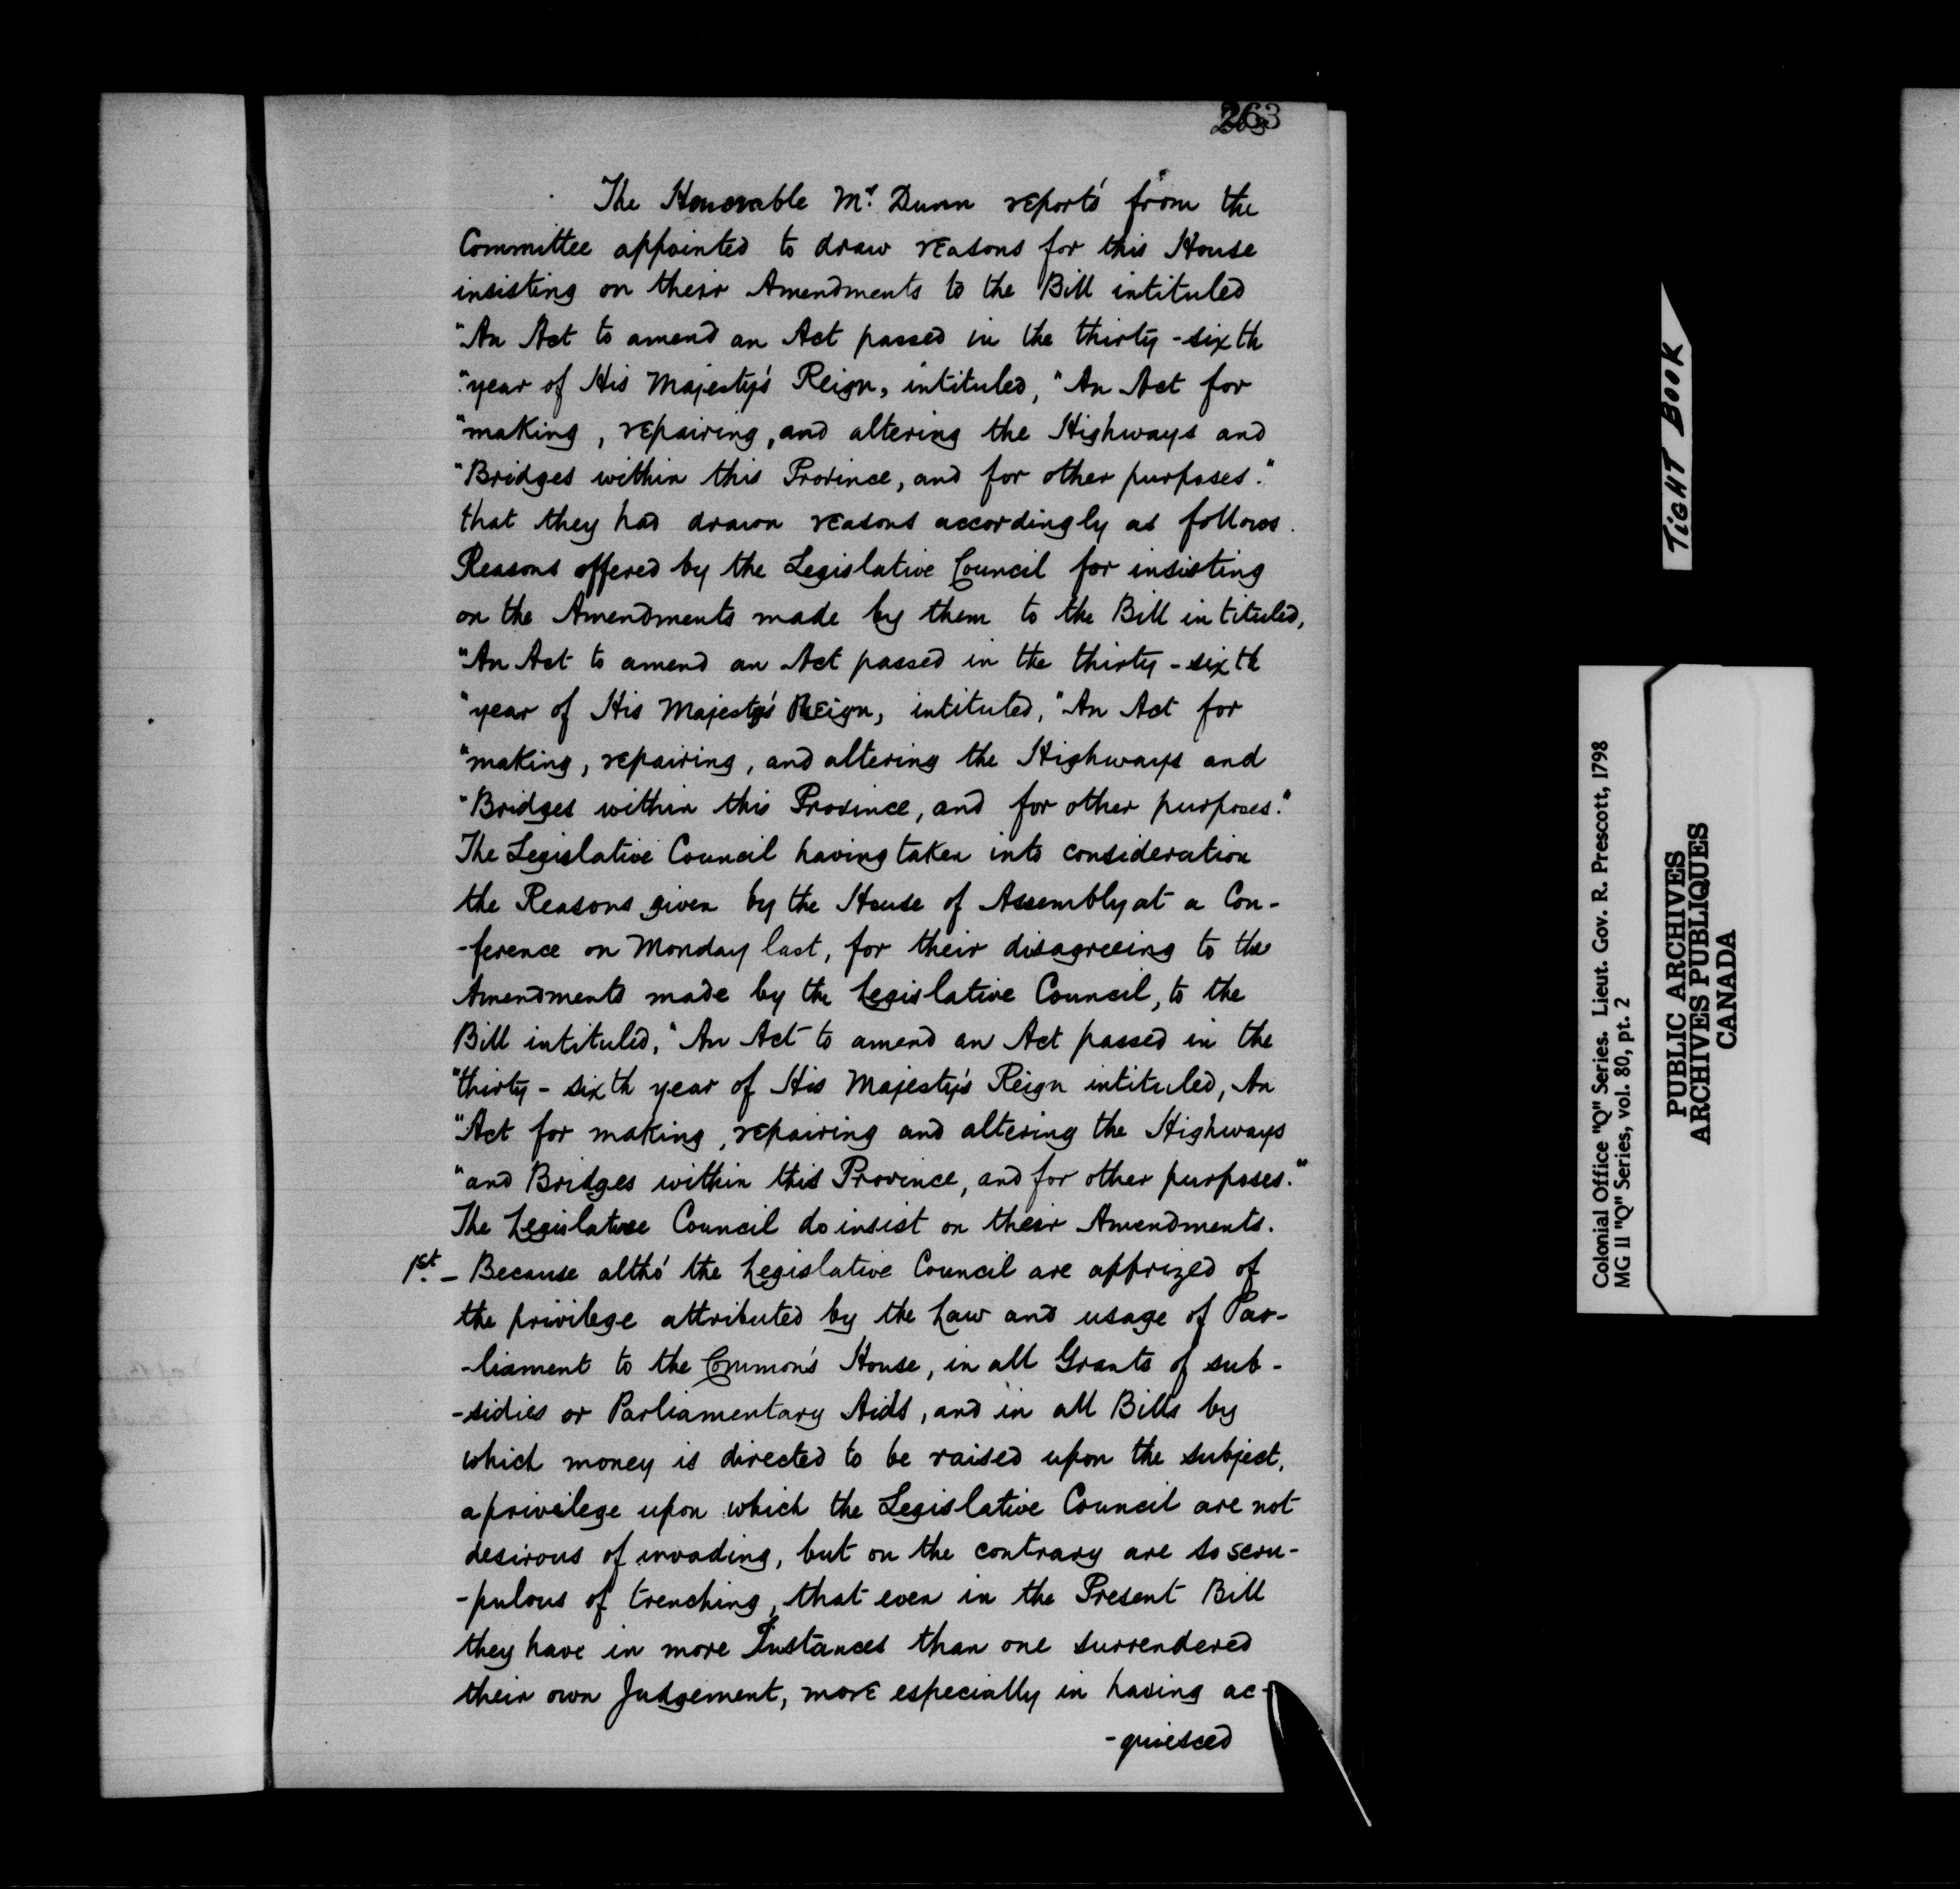 263
The Honorable Mr. Dunn reports from the
Committee appointed to draw reasons for this House
insisting on their Amendments to the Bill intituled
"An Act to amend an Act passed in the thirty-sixth
"year of His Majesty's Reign, intituled, "An Act for
"making, repairing, and altering the Highways and
"Bridges within this Province, and for other purposes."
that they had drawn reasons accordingly as follows.
Reasons offered by the Legislative Council for insisting
on the Amendments made by them to the Bill intituled,
"An Act to amend an Act passed in the thirty-sixth
"year of His Majesty's Reign, intituled, "An Act for
"making, repairing, and altering the Highways and
"Bridges within this Province, and for other purposes."
The Legislative Council having taken into consideration
the Reasons given by the House of Assembly at a Con-
-ference on Monday last, for their disagreeing to the
Amendments made by the Legislative Council, to the
Bill intituled, "An Act to amend an Act passed in the
"thirty-sixth year of His Majesty's Reign intituled, An
"Act for making, repairing and altering the Highways
"and Bridges within this Province, and for other purposes."
The Legislative Council do insist on their Amendments.
1st. - Because altho' the Legislative Council are apprized of
the privilege attributed by the Law and usage of Par-
-liament to the Common's House, in all Grants of sub-
-sidies or Parliamentary Aids, and in all Bills by
which money is directed to be raised upon the subject,
a privilege upon which the Legislative Council are not
desirous of invading, but on the contrary are so scru-
-pulous of trenching, that even in the Present Bill
they have in more Instances than one surrendered
their own Judgement, more especially in having ac-
-quiesced
TIGHT BOOK
Colonial Office "Q" Series. Lieut. Gov. R. Prescott, 1798
MG 11 "Q" Series, vol. 80, pt. 2
PUBLIC ARCHIVES
ARCHIVES PUBLIQUES
CANADA